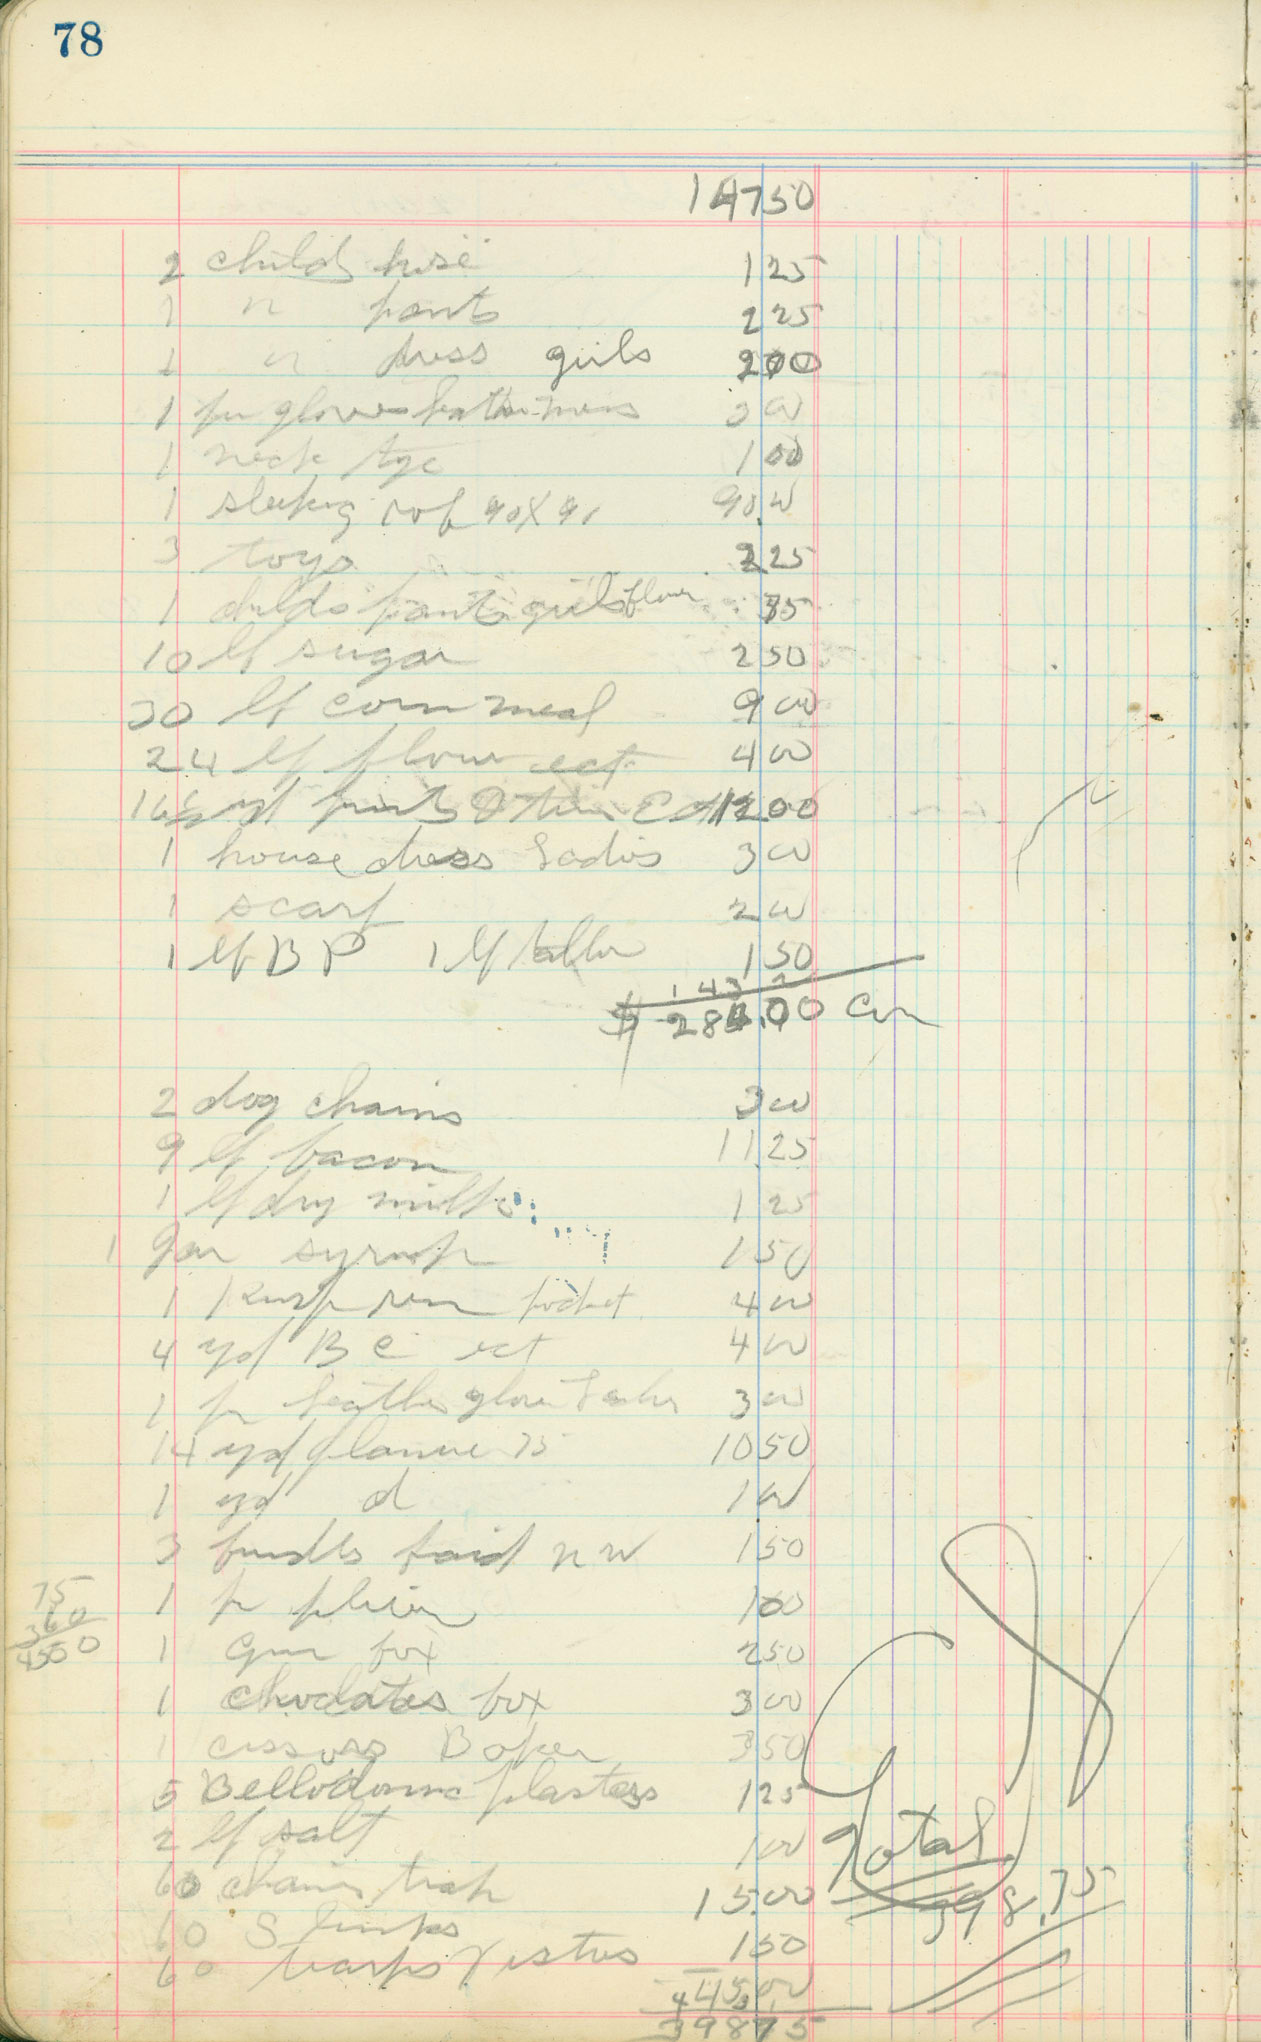 78
147 50
2 childs hose 1 25
1 " pants 2 25
1 " dress girls 2 00
1 pr gloves leather mens 3 00
1 neck tye 1 00
1 sleeping rob 90 X 90.00
3 toys 2 25
1 childs pants girls 75
10 lb sugar 2 50
30 lb corn meal 9 00
24 lb flour ect 4 00
16 yd prints 12 00
1 house dress Ladies 3 00
1 scarf 2 00
1 lb B P 1 lb 1 50
143
$ 284.00
2 dog chains 3 00
9 lb bacon 11 25
1 lb dry milk 1 25
1 gal syrup 1 50
1 pocket 4 00
4 yd B C ect 4 00
1 pr leather glove 3 00
14 yd flanne 75 10 50
1 yd d 1 00
3 bundles 1 50
75
360
4500
1 pr pliers 1 00
1 Gum box 2 50
1 choclates box 3 00
1 cissors Boker 3 50
5 Belladonna plasters 1 25
2 lb salt 1 00
Total
60 chains trap 15.00
398.75
60 S links 1 50
60 traps Victus 45.00
398 75